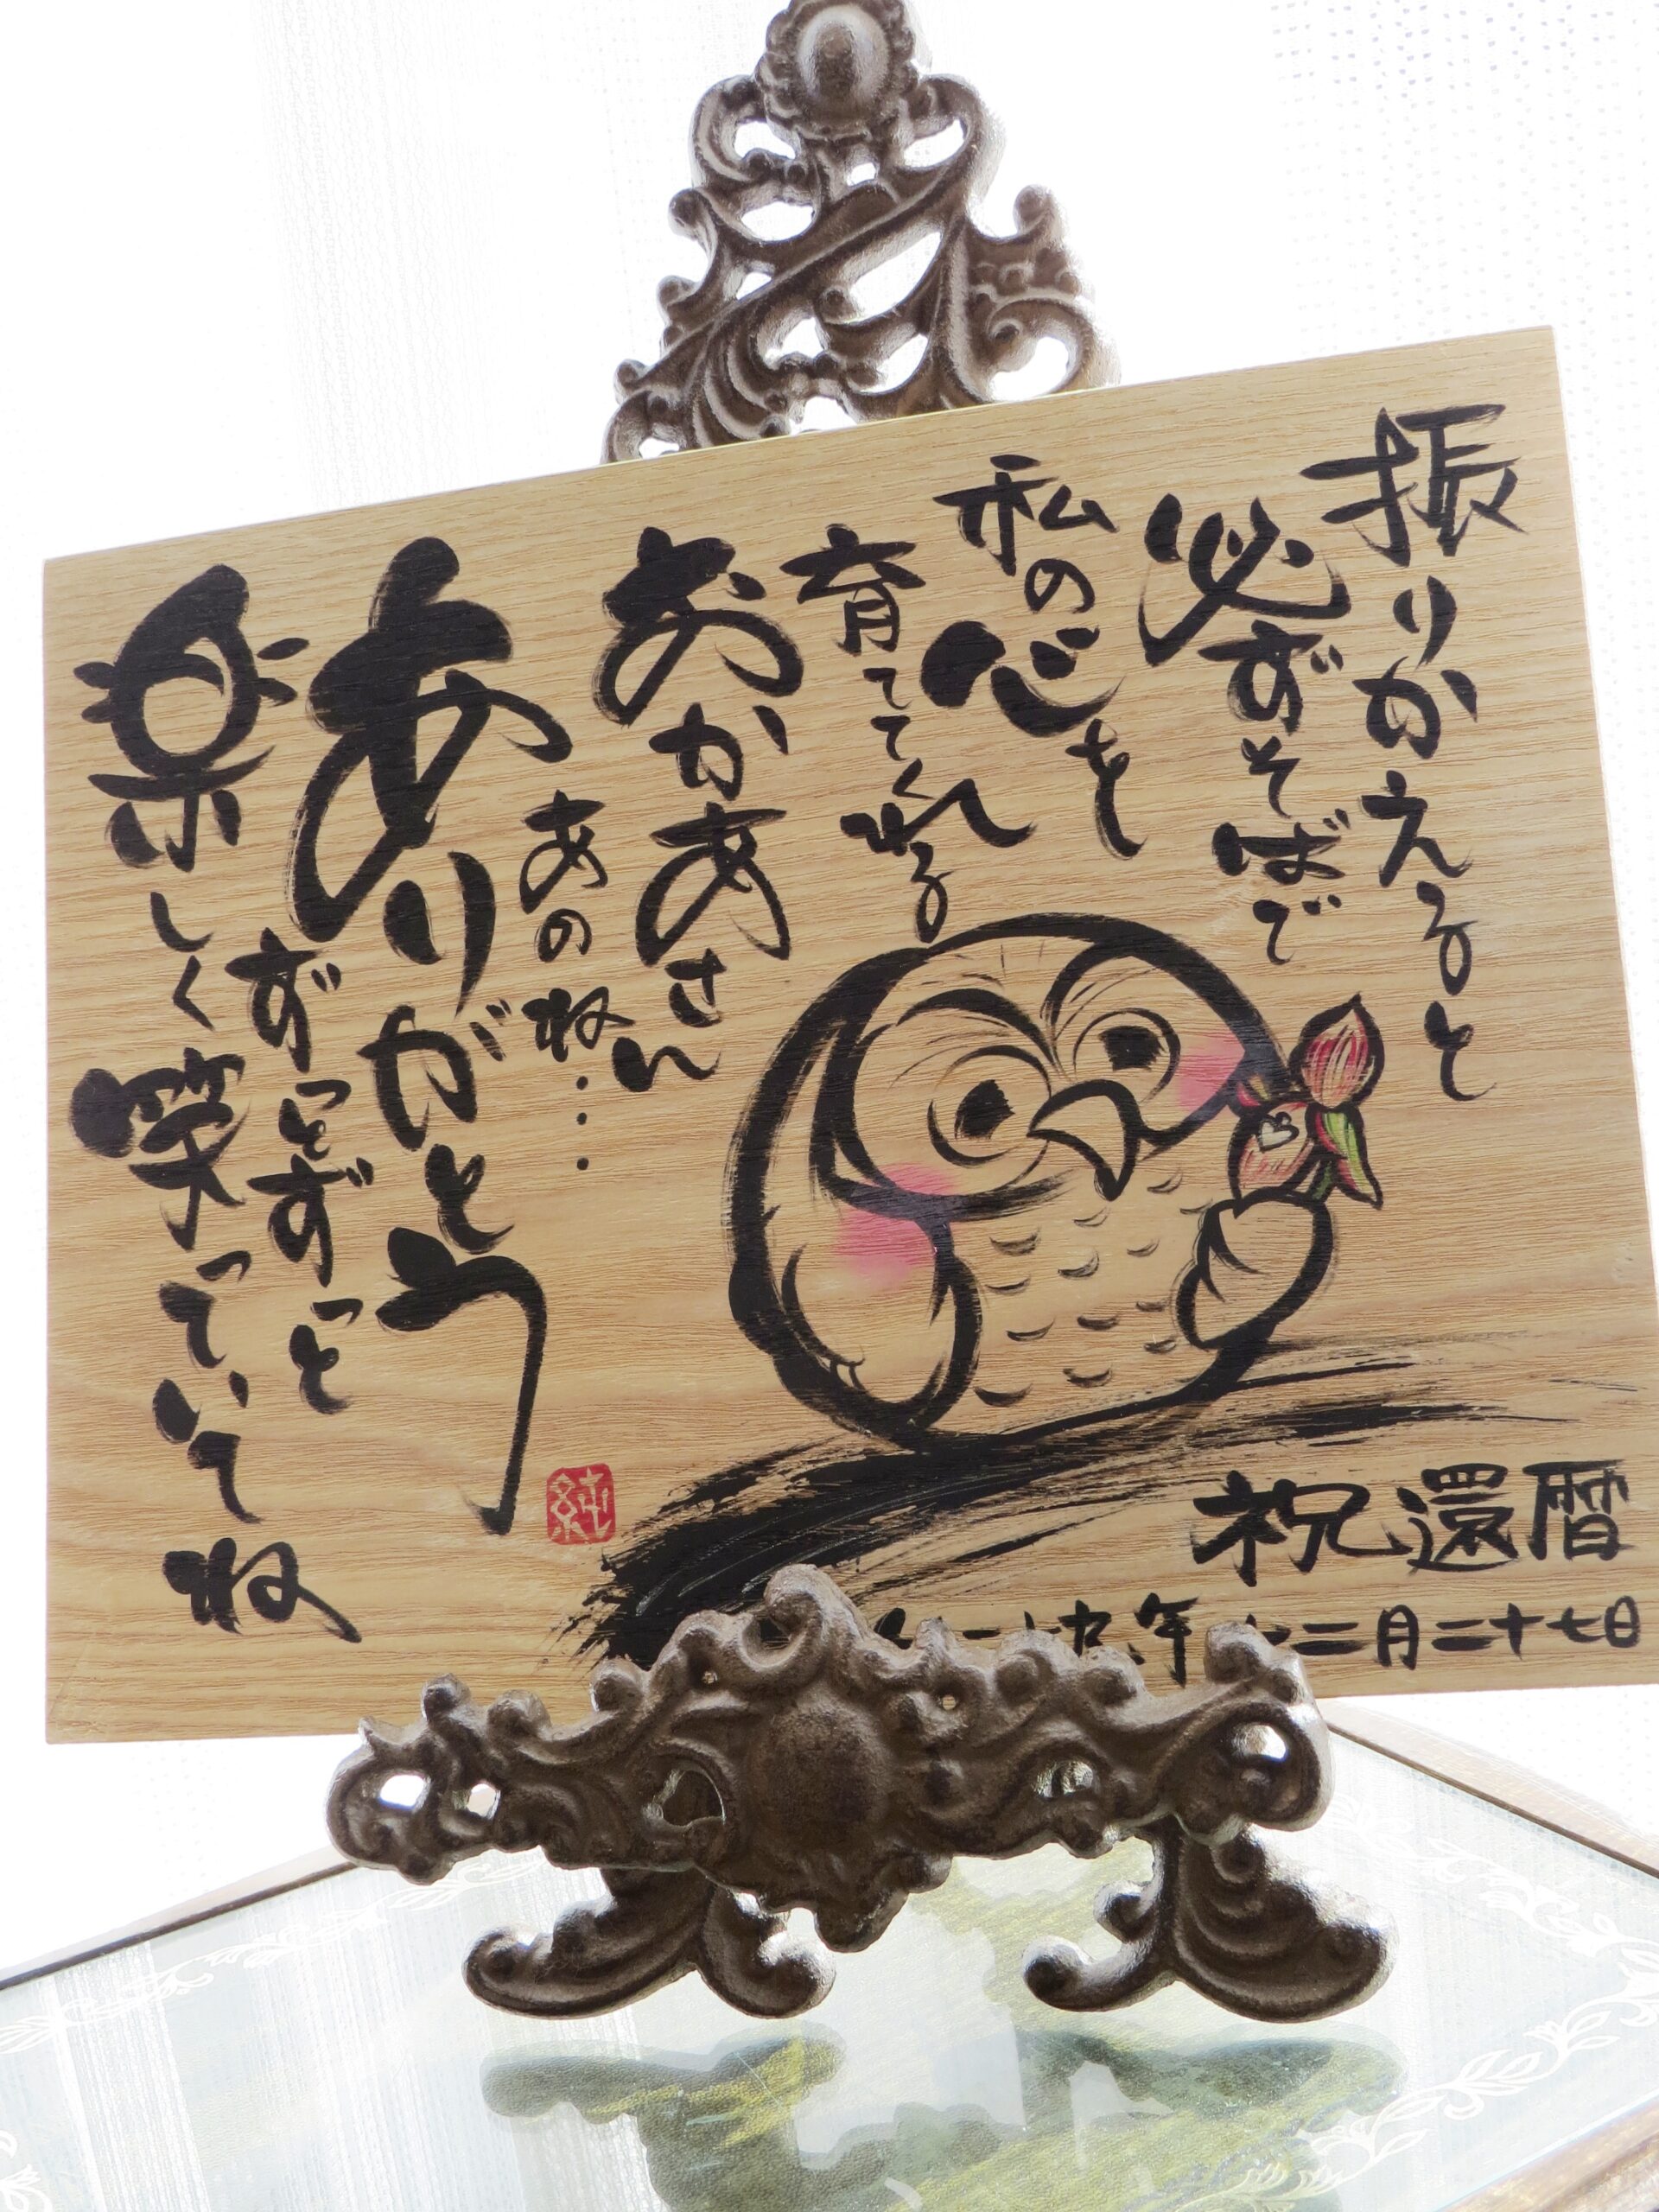 振りかえると
必ずそばで
私の心を
育ててくれる
おかあさん
あのね・・・
ありがとう
ずっとずっと
楽しく笑っていてね
純
祝還暦
年十二月二十七日